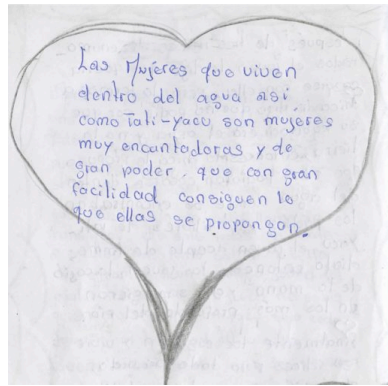 Las Mujeres que viven
dentro del agua asi
como Tali-yacu son mujeres
muy encantadoras y de
gran poder. que con gran
facilidad consiguen lo
que ellas se propongan.